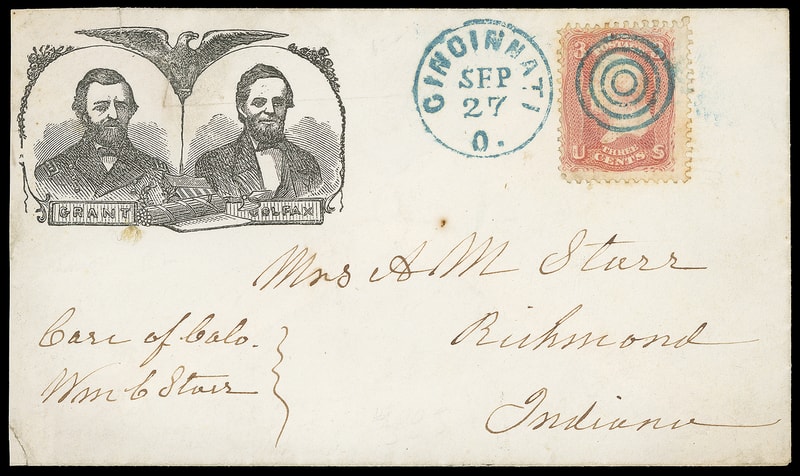 GRANT
COLFAX
CINCINNATI
SEP
27
O.
3
POSTAGE
U THREE CENTS S
Mrs A M Starr
Richmond
Indiana
Care of Calo.
Wm C Starr